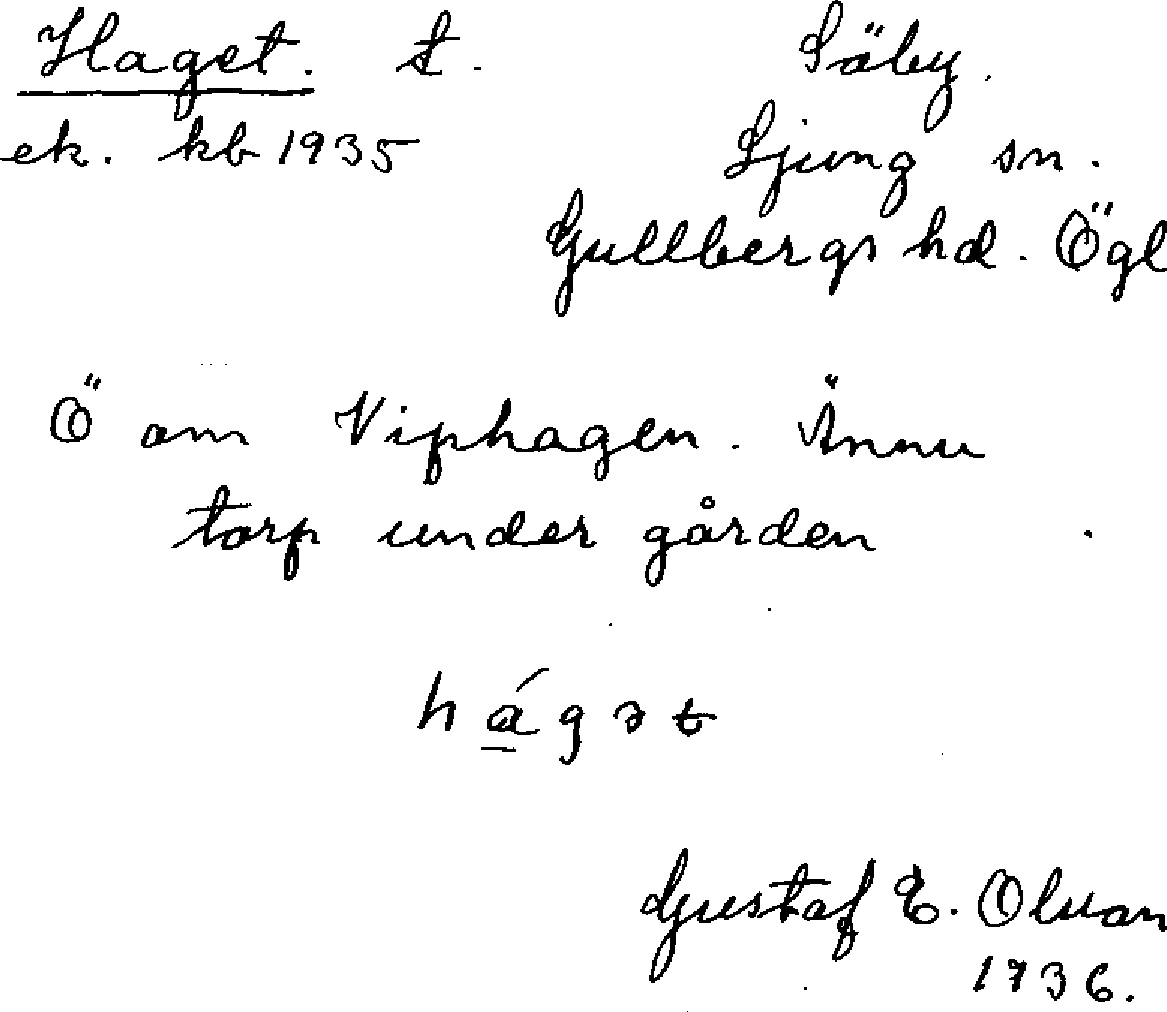 Haget. t. Säby.
ek. kb 1935 Ljung sn.
Gullbergs hd. Ögl
Ö om Viphagen. Ännu
torp under gården
hágət
Gustaf E. Olsson
1936.